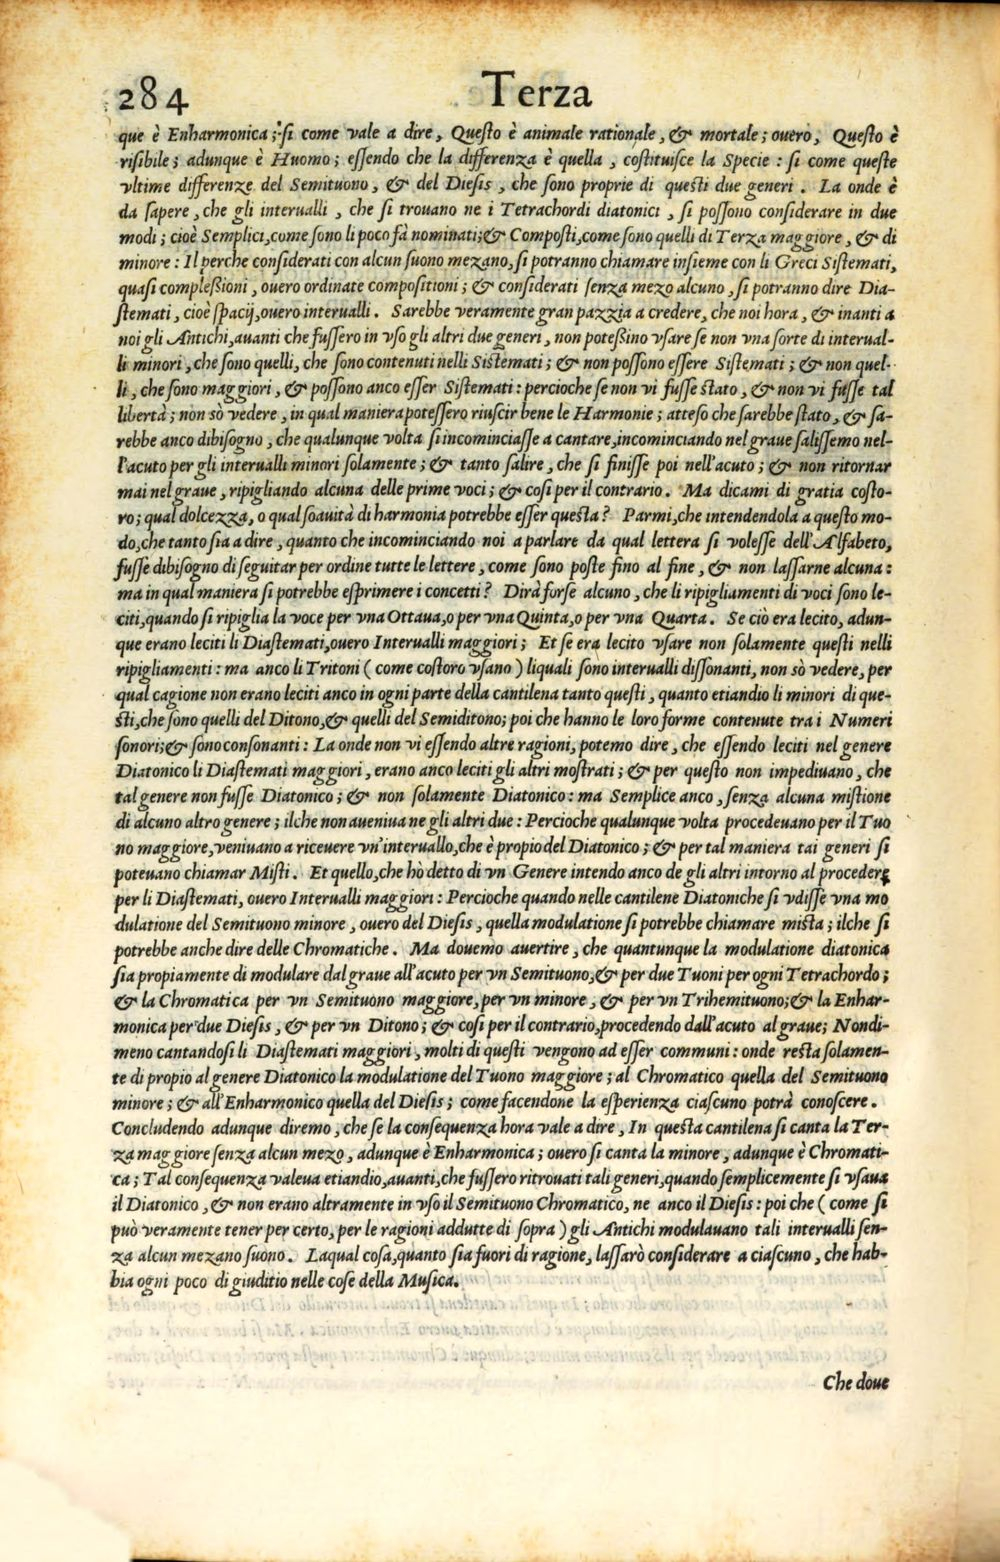 284 Terza
que è Enharmonica; si come vale a dire, Queſto è animale rationale, & mortale; ouero, Queſto è
riſibile; adunque è Huomo; eſſendo che la differenza è quella, coſtituiſce la Specie: ſi come queſte
vltime differenze del Semituono, & del Dieſis, che ſono proprie di queſti due generi. La onde è
da ſapere, che gli interualli, che ſi trouano ne i Tetrachordi diatonici, ſi poſſono conſiderare in due
modi; cioè Semplici, come ſono li poco fà nominati; & Compoſti, come ſono quelli di Terza maggiore, & di
minore: Il perche conſiderati con alcun ſuono mezano, ſi potranno chiamare inſieme con li Greci Siſtemati,
quaſi compleßioni, ouero ordinate compoſitioni; & conſiderati ſenza mezo alcuno, ſi potranno dire Dia-
ſtemati, cioè ſpacij, ouero interualli. Sarebbe veramente gran pazzia a credere, che noi hora, & inanti a
noi gli Antichi, auanti che fuſſero in vſo gli altri due generi, non poteßino vſare ſe non vna ſorte di interual-
li minori, che ſono quelli, che ſono contenuti nelli Siſtemati; & non poſſono eſſere Siſtemati; & non quel-
li, che ſono maggiori, & poſſono anco eſſer Siſtemati: percioche ſe non vi fuſſe ſtato, & non vi fuſſe tal
libertà; non sò vedere, in qual maniera poteſſero riuſcir bene le Harmonie; atteſo che ſarebbe ſtato, & ſa-
rebbe anco dibiſogno, che qualunque volta ſi incominciaſſe a cantare, incominciando nel graue ſaliſſemo nel-
l'acuto per gli interualli minori ſolamente; & tanto ſalire, che ſi finiſſe poi nell'acuto; & non ritornar
mai nel graue, ripigliando alcuna delle prime voci; & coſi per il contrario. Ma dicami di gratia coſto-
ro; qual dolcezza, o qual ſoauità di harmonia potrebbe eſſer queſta? Parmi, che intendendola a queſto mo-
do, che tanto ſia a dire, quanto che incominciando noi a parlare da qual lettera ſi voleſſe dell'Alfabeto,
fuſſe dibiſogno di ſeguitar per ordine tutte le lettere, come ſono poſte fino al fine, & non laſſarne alcuna:
ma in qual maniera ſi potrebbe eſprimere i concetti? Dirà forſe alcuno, che li ripigliamenti di voci ſono le-
citi, quando ſi ripiglia la voce per vna Ottaua, o per vna Quinta, o per vna Quarta. Se ciò era lecito, adun-
que erano leciti li Diaſtemati, ouero Interualli maggiori; Et ſe era lecito vſare non ſolamente queſti nelli
ripigliamenti: ma anco li Tritoni (come coſtoro vſano) liquali ſono interualli diſſonanti, non sò vedere, per
qual cagione non erano leciti anco in ogni parte della cantilena tanto queſti, quanto etiandio li minori di que-
ſti, che ſono quelli del Ditono, & quelli del Semiditono; poi che hanno le loro forme contenute tra i Numeri
ſonori; & ſono conſonanti: La onde non vi eſſendo altre ragioni, potemo dire, che eſſendo leciti nel genere
Diatonico li Diaſtemati maggiori, erano anco leciti gli altri moſtrati; & per queſto non impediuano, che
tal genere non fuſſe Diatonico; & non ſolamente Diatonico: ma Semplice anco, ſenza alcuna miſtione
di alcuno altro genere; ilche non aueniua ne gli altri due: Percioche qualunque volta procedeuano per il Tuo
no maggiore, veniuano a riceuere vn'interuallo, che è propio del Diatonico; & per tal maniera tai generi ſi
poteuano chiamar Miſti. Et quello, che hò detto di vn Genere intendo anco de gli altri intorno al procedere
per li Diaſtemati, ouero Interualli maggiori: Percioche quando nelle cantilene Diatoniche ſi vdiſſe vna mo
dulatione del Semituono minore, ouero del Dieſis, quella modulatione ſi potrebbe chiamare miſta; ilche ſi
potrebbe anche dire delle Chromatiche. Ma douemo auertire, che quantunque la modulatione diatonica
ſia propiamente di modulare dal graue all'acuto per vn Semituono, & per due Tuoni per ogni Tetrachordo;
& la Chromatica per vn Semituono maggiore, per vn minore, & per vn Trihemituono; & la Enhar-
monica per due Dieſis, & per vn Ditono; & coſi per il contrario, procedendo dall'acuto al graue; Nondi-
meno cantandoſi li Diaſtemati maggiori, molti di queſti vengono ad eſſer communi: onde reſta ſolamen-
te di propio al genere Diatonico la modulatione del Tuono maggiore; al Chromatico quella del Semituono
minore; & all'Enharmonico quella del Dieſis; come facendone la eſperienza ciaſcuno potrà conoſcere.
Concludendo adunque diremo, che ſe la conſequenza hora vale a dire, In queſta cantilena ſi canta la Ter-
za maggiore ſenza alcun mezo, adunque è Enharmonica; ouero ſi canta la minore, adunque è Chromati-
ca; Tal conſequenza valeua etiandio, auanti, che fuſſero ritrouati tali generi, quando ſemplicemente ſi vſaua
il Diatonico, & non erano altramente in vſo il Semituono Chromatico, ne anco il Dieſis: poi che (come ſi
può veramente tener per certo, per le ragioni addutte di ſopra) gli Antichi modulauano tali interualli ſen-
za alcun mezano ſuono. Laqual coſa, quanto ſia fuori di ragione, laſſarò conſiderare a ciaſcuno, che hab-
bia ogni poco di giuditio nelle coſe della Muſica.
Che doue